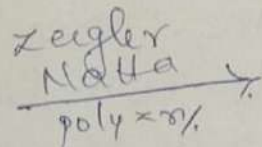 Zeigler
Natta
poly